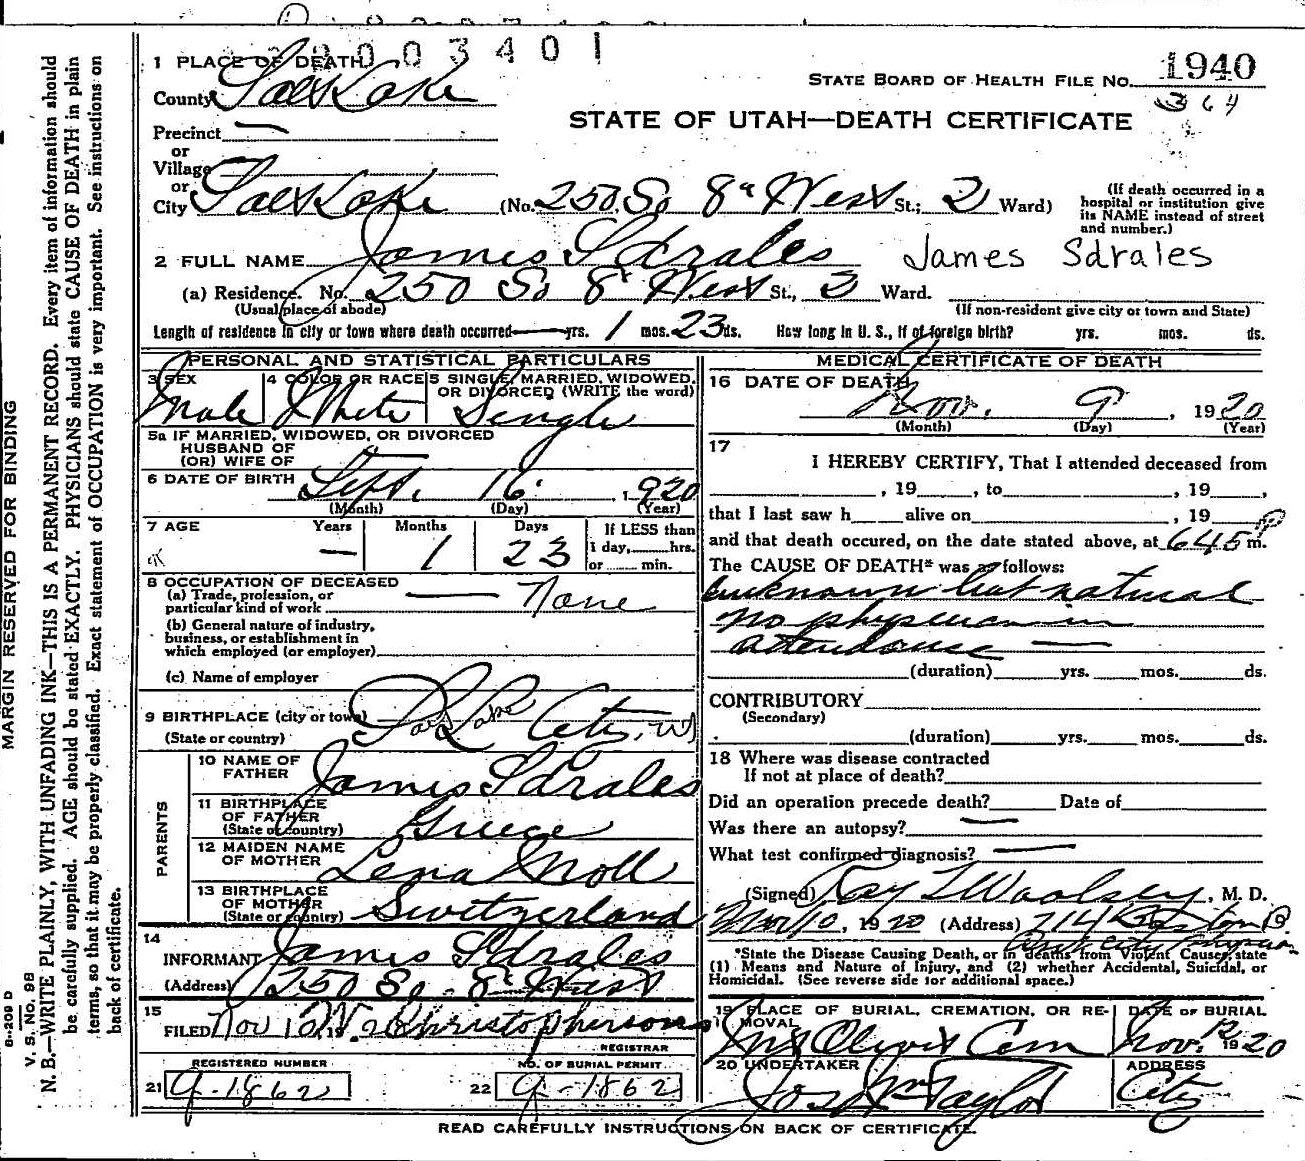 2003401
1 PLACE OF DEATH
STATE BOARD OF HEALTH FILE No. 1940
County Salt Lake
364
STATE OF UTAH—DEATH CERTIFICATE
Precinct —
or
Village
or
City Salt Lake (No. 250 So 8" West St.; 2 Ward)
(If death occurred in a hospital or institution give its NAME instead of street and number.)
2 FULL NAME James Sdrales James Sdrales
(a) Residence. No. 250 So 8" West St., 2 Ward.
(Usual place of abode) (If non-resident give city or town and State)
Length of residence in city or town where death occurred — yrs. 1 mos. 23 ds. How long in U. S., if of foreign birth? yrs. mos. ds.
PERSONAL AND STATISTICAL PARTICULARS
3 SEX Male
4 COLOR OR RACE White
5 SINGLE, MARRIED, WIDOWED, OR DIVORCED (WRITE the word) Single
5a IF MARRIED, WIDOWED, OR DIVORCED
HUSBAND OF
(OR) WIFE OF —
6 DATE OF BIRTH Sept. 16 1920
(Month) (Day) (Year)
7 AGE Years — Months 1 Days 23
If LESS than
1 day, hrs.
or min.
8 OCCUPATION OF DECEASED
(a) Trade, profession, or
particular kind of work — None
(b) General nature of industry,
business, or establishment in
which employed (or employer)
(c) Name of employer
9 BIRTHPLACE (city or town) Salt Lake City, Ut
(State or country)
PARENTS
10 NAME OF FATHER James Sdrales
11 BIRTHPLACE OF FATHER (State or country) Greece
12 MAIDEN NAME OF MOTHER Lena Moll
13 BIRTHPLACE OF MOTHER (State or country) Switzerland
14 INFORMANT James Sdrales
(Address) 250 So. 8" West
15 FILED Nov 12 19 Christopherson
REGISTRAR
REGISTERED NUMBER
21 G-1862
NO. OF BURIAL PERMIT
22 G-1862
MEDICAL CERTIFICATE OF DEATH
16 DATE OF DEATH
Nov. 9, 1920
(Month) (Day) (Year)
17
I HEREBY CERTIFY, That I attended deceased from
, 19 , to , 19 ,
that I last saw h alive on , 19
and that death occured, on the date stated above, at 645 P m.
The CAUSE OF DEATH* was as follows:
unknown but natural
no physician in
attendance —
(duration) yrs. mos. ds.
CONTRIBUTORY
(Secondary)
(duration) yrs. mos. ds.
18 Where was disease contracted
If not at place of death?
Did an operation precede death? — Date of
Was there an autopsy? —
What test confirmed diagnosis? —
(Signed) Roy T Woolsey, M. D.
Nov 10, 1920 (Address) 714 Boston B.
City Physician
*State the Disease Causing Death, or in deaths from Violent Causes, state
(1) Means and Nature of Injury, and (2) whether Accidental, Suicidal, or
Homicidal. (See reverse side for additional space.)
19 PLACE OF BURIAL, CREMATION, OR REMOVAL
Mt Olivet Cem
DATE OF BURIAL
Nov. 12 1920
20 UNDERTAKER
Jos Wm Taylor
ADDRESS
City
READ CAREFULLY INSTRUCTIONS ON BACK OF CERTIFICATE.
MARGIN RESERVED FOR BINDING
V. S. No. 98
N. B.—WRITE PLAINLY, WITH UNFADING INK—THIS IS A PERMANENT RECORD. Every item of information should
be carefully supplied. AGE should be stated EXACTLY. PHYSICIANS should state CAUSE OF DEATH in plain
terms, so that it may be properly classified. Exact statement of OCCUPATION is very important. See instructions on
back of certificate.